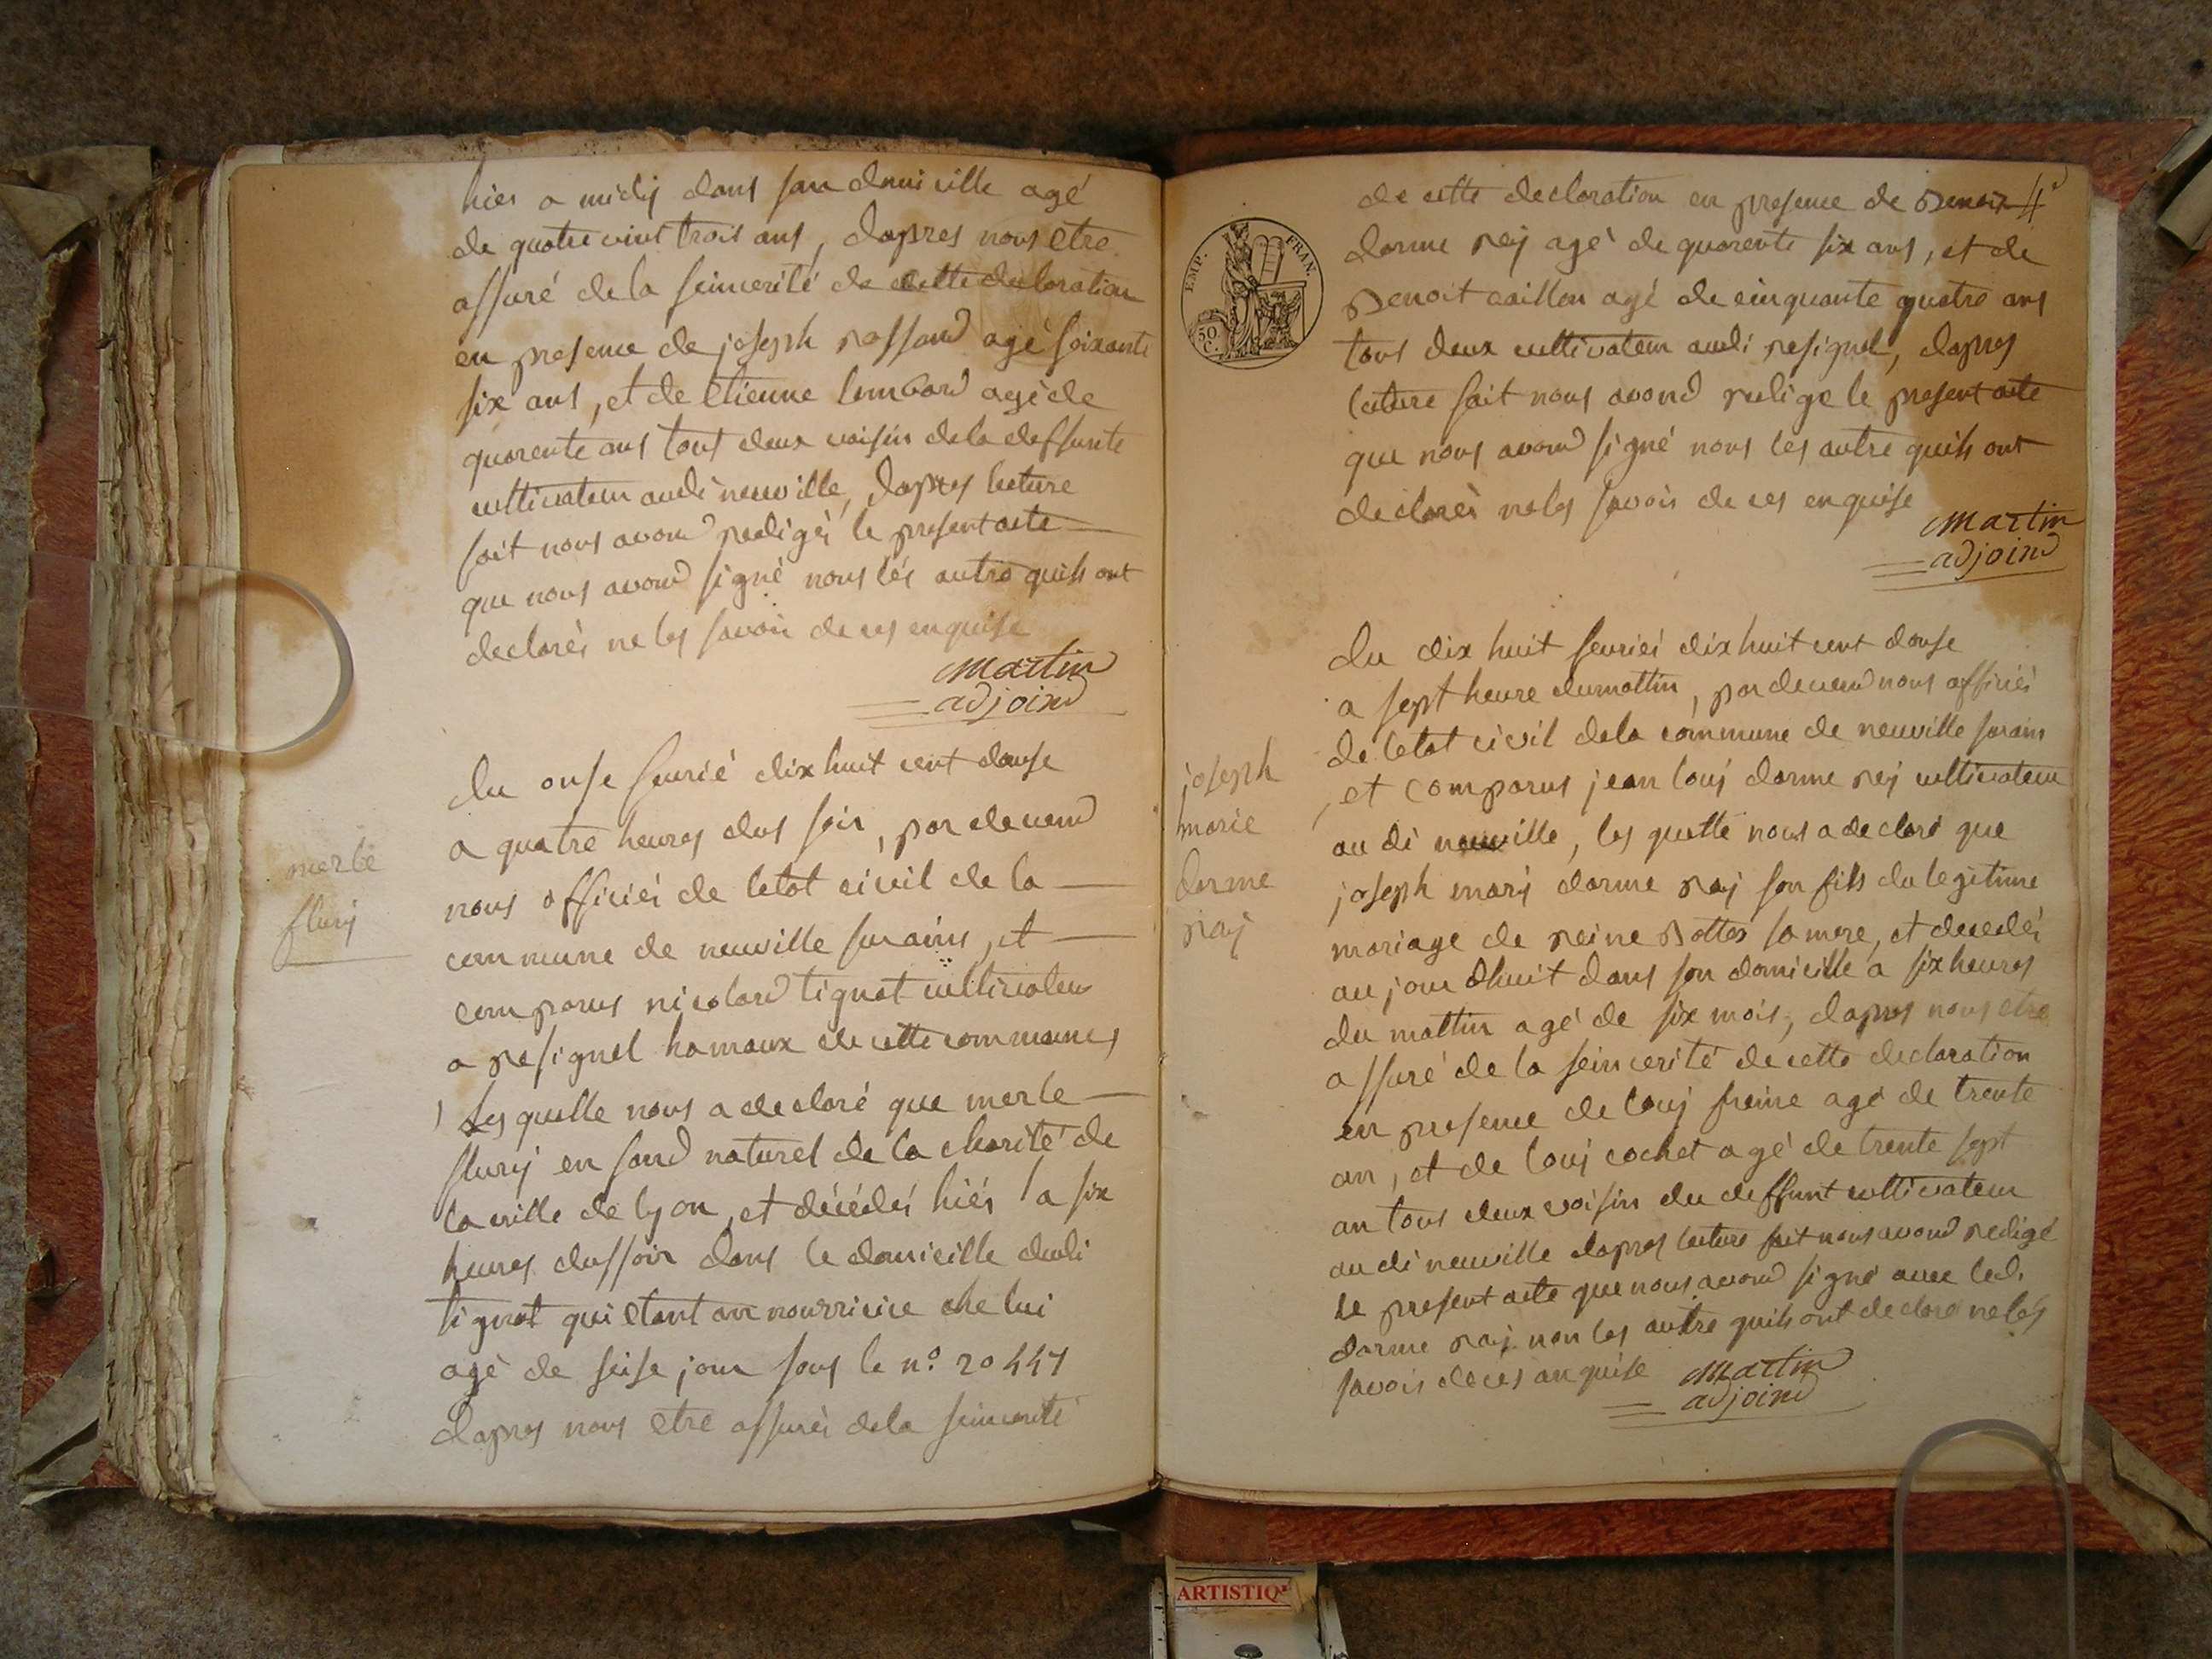 hier a midij dans sans domicille agé
de quatre vint trois ans, dapres nous etre
assuré de la seincerité de cette declaration
en presence de joseph agé soixante
six ans, et de Etienne lombard agé de
quarente ans tous deux voisin dela deffunte
cultivateur audi neuville, dapres lecture
fait nous avond redigéi le present acte
que nous avond signé nous lés autre quils ont
declaréi ne les savoir de ces enquise
Martin
adjoind
merle
flurij
du onse feurié dix huit cent douse
a quatre heures dus soir, par devend
nous officiéi de letat civil de la
commune de neuville surains, et
comparus nicolard tignat cultivateur
a resignel hamaux de cette communes
Les quelle nous a declaré que merle
flurij en fand naturel de la charité de
la ville de lyon, et décédéi hiér a six
heures dussoir dans le domicille dudi
tignat qui etant en nourricice che lui
agé de seise jour sous le nº 20447
dapres nous etre assuréi dela seincerité
de cette declaration en presence de Benoit 4
EMP. FRAN.
50 C.
darme reij agé de quarente six ans, et de
Benoit caillon agé de cinquante quatre ans
tous deux cultivateur audi resignel, dapres
lecture fait nous avond redige le present acte
que nous avond signé nous les autre quils ont
declaréi neles savoir de ces enquise
Martin
adjoind
joseph
marie
darme
raij
du dix huit feuriéi dix huit cent douse
a sept heure dumattin, par devend nous officiéi
de letat civil dela commune de neuville surains
et comparus jean louij darme reij cultivateur
au di neuville, les quelle nous a declaré que
joseph marij darme raij son fils du legitime
mariage de reine Bottex sa mere, et decedéi
au jour dhuit dans son domicille a six heures
du mattin agé de six mois, dapres nous etre
assuré de la seincerité de cette declaration
en presence de louij freire agé de trente
an, et de louij cochet agé de trente sept
an tous deux voisin du deffunt cultivateur
au di neuville dapres lecture fait nous avond redigé
le present acte que nous avond signé avec led.
darme raij non les autre quils ont declaré neles
savoir de ces anquise Martin
adjoind
ARTISTIQ